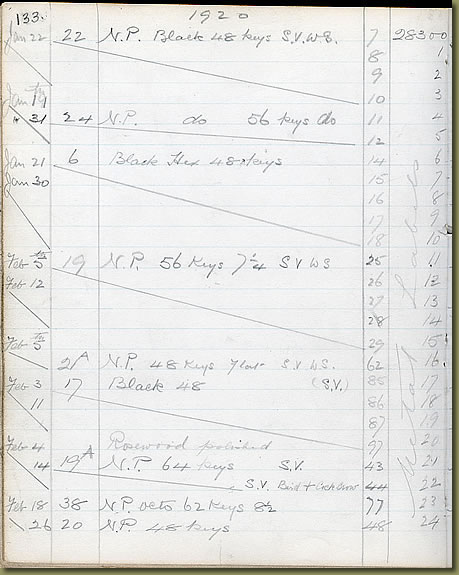 133. 1920
Jan 22 22 N.P. Black 48 Keys S.V. W.S. 7 28300
8 1
9 2
Jan 19 10 3
" 31 24 N.P. do 56 Keys do 11 4
12 5
Jan 21 6 Black Hex 48 Keys 14 6
Jan 30 15 7
16 8
17 9
18 10
Feb 5th 19 N.P. 56 Keys 7¼ S V W S 25 11
Feb 12 26 12
27 13
28 14
Feb 5th 29 15
21A N.P. 48 Keys Flat S.V. W.S. 62 16
Feb 3 17 Black 48 (S.V.) 85 17
11 86 18
87 19
Feb 4 Rosewood polished 97 20
14 19A N.P. 64 Keys S.V. 43 21
S.V. Bird + Cock Crow 44 22
Feb 18 38 N.P. octo 62 Keys 8½ 77 23
26 20 N.P. 48 Keys 48 24
Metal Labels